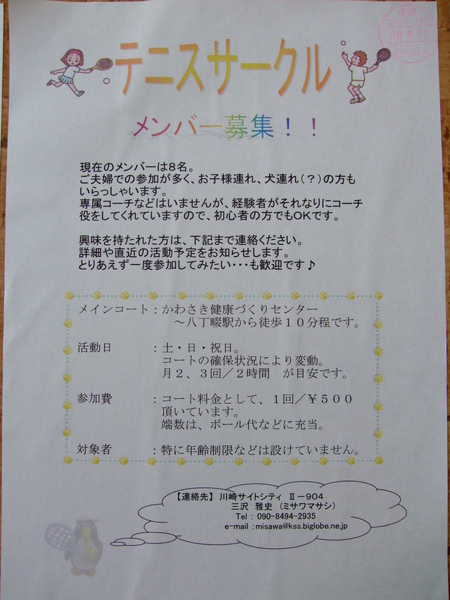 テニスサークル
メンバー募集！！
現在のメンバーは８名。
ご夫婦での参加が多く、お子様連れ、犬連れ（？）の方も
いらっしゃいます。
専属コーチなどはいませんが、経験者がそれなりにコーチ
役をしてくれていますので、初心者の方でもOKです。
興味を持たれた方は、下記まで連絡ください。
詳細や直近の活動予定をお知らせします。
とりあえず一度参加してみたい・・・も歓迎です♪
メインコート：かわさき健康づくりセンター
～八丁畷駅から徒歩１０分程です。
活動日　：土・日・祝日。
コートの確保状況により変動。
月２、３回／２時間　が目安です。
参加費　：コート料金として、１回／￥５００
頂いています。
端数は、ボール代などに充当。
対象者　：特に年齢制限などは設けていません。
【連絡先】 川崎サイトシティ　Ⅱ－904
三沢　雅史　（ミサワマサシ）
Tel： 090-8494-2935
e-mail：misawa@kss.biglobe.ne.jp